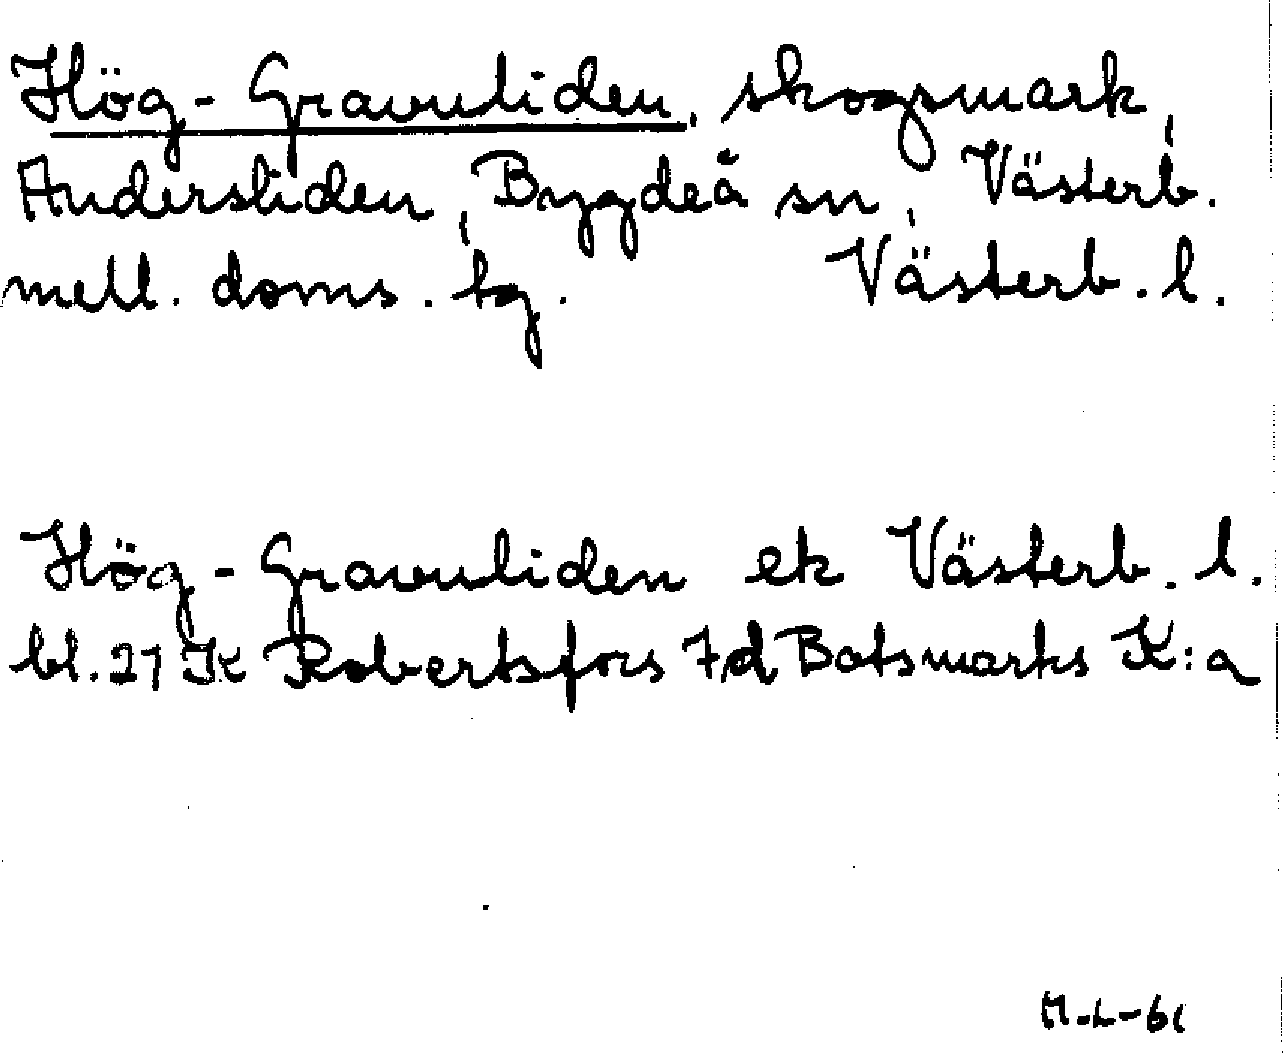 Hög-Gravuliden, skogsmark,
Andersliden, Bygdeå sn, Västerb.
mell. doms. tg. Västerb. l.
Hög-Gravuliden ek Västerb. l.
bl. 27 K Robertsfors 7d Botsmarks K:a
M-L-61